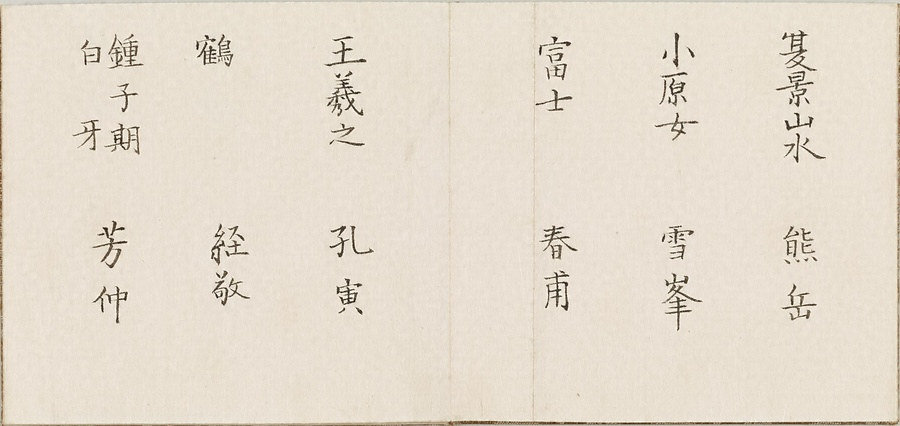 夏景山水 熊岳
小原女 雪峯
富士 春甫
王羲之 孔寅
鶴 経敬
鍾子期 芳仲
白牙